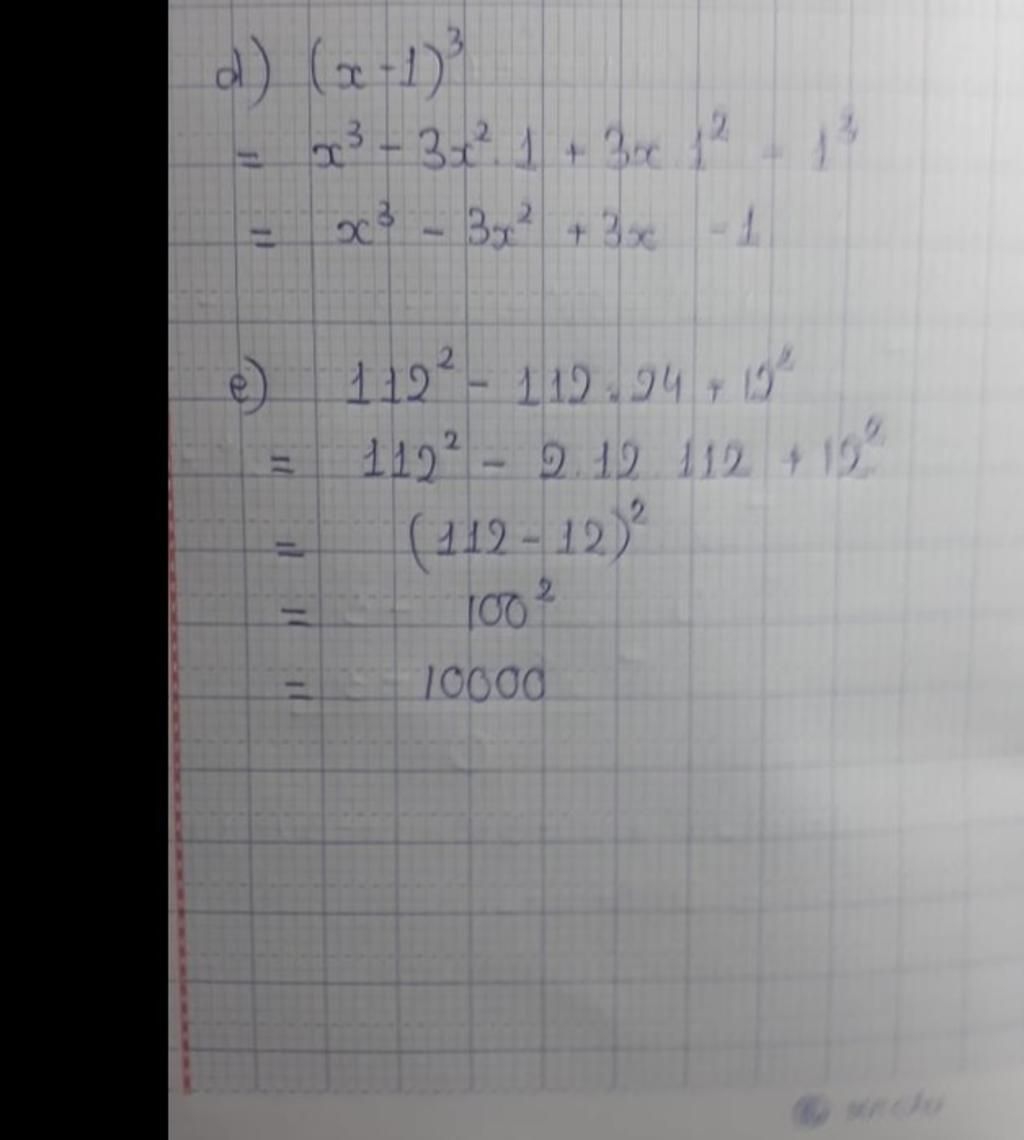 d) (x - 1)³
= x³ - 3x² . 1 + 3x 1² - 1³
= x³ - 3x² + 3x - 1
e) 112² - 112 . 24 + 12²
= 112² - 2 . 12 112 + 12²
= (112 - 12)²
= 100²
= 10000